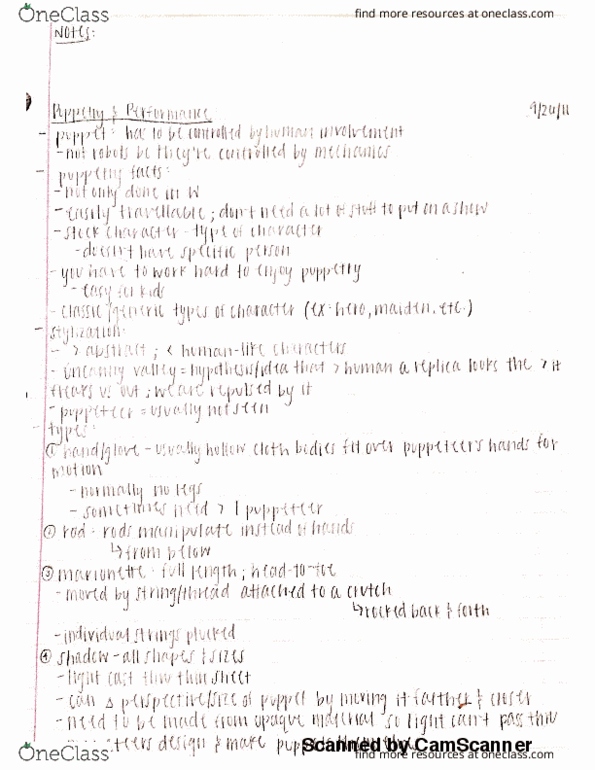 OneClass
find more resources at oneclass.com
NOTES:
Puppetry & Performance
- puppet: has to be controlled by human involvement
- not robots bc they're controlled by mechanics
- puppetry facts:
- not only done in W
- easily travellable; don't need a lot of stuff to put on a show
- stock character - type of character
- doesn't have specific person
- you have to work hard to enjoy puppetry
- easy for kids
- classic/generic types of character (ex. hero, maiden, etc.)
- stylization:
- > abstract ; < human-like characters
- uncanny valley = hypothesis/idea that > human a replica looks the > it
freaks us out; we are repulsed by it
- puppeteer = usually not seen
- types:
① hand/glove - usually hollow cloth bodies fit over puppeteer's hands for
motion
- normally no legs
- sometimes need > 1 puppeteer
② rod - rods manipulate instead of hands
↳ from below
③ marionette - full length; head-to-toe
- moved by string/thread attached to a crutch
↳ rocked back & forth
- individual strings plucked
④ shadow - all shapes & sizes
- light cast thru thin sheet
- can Δ perspective/size of puppet by moving it farther & closer
- need to be made from opaque material so light can't pass thru
design & make
Scanned by CamScanner
OneClass
find more resources at oneclass.com